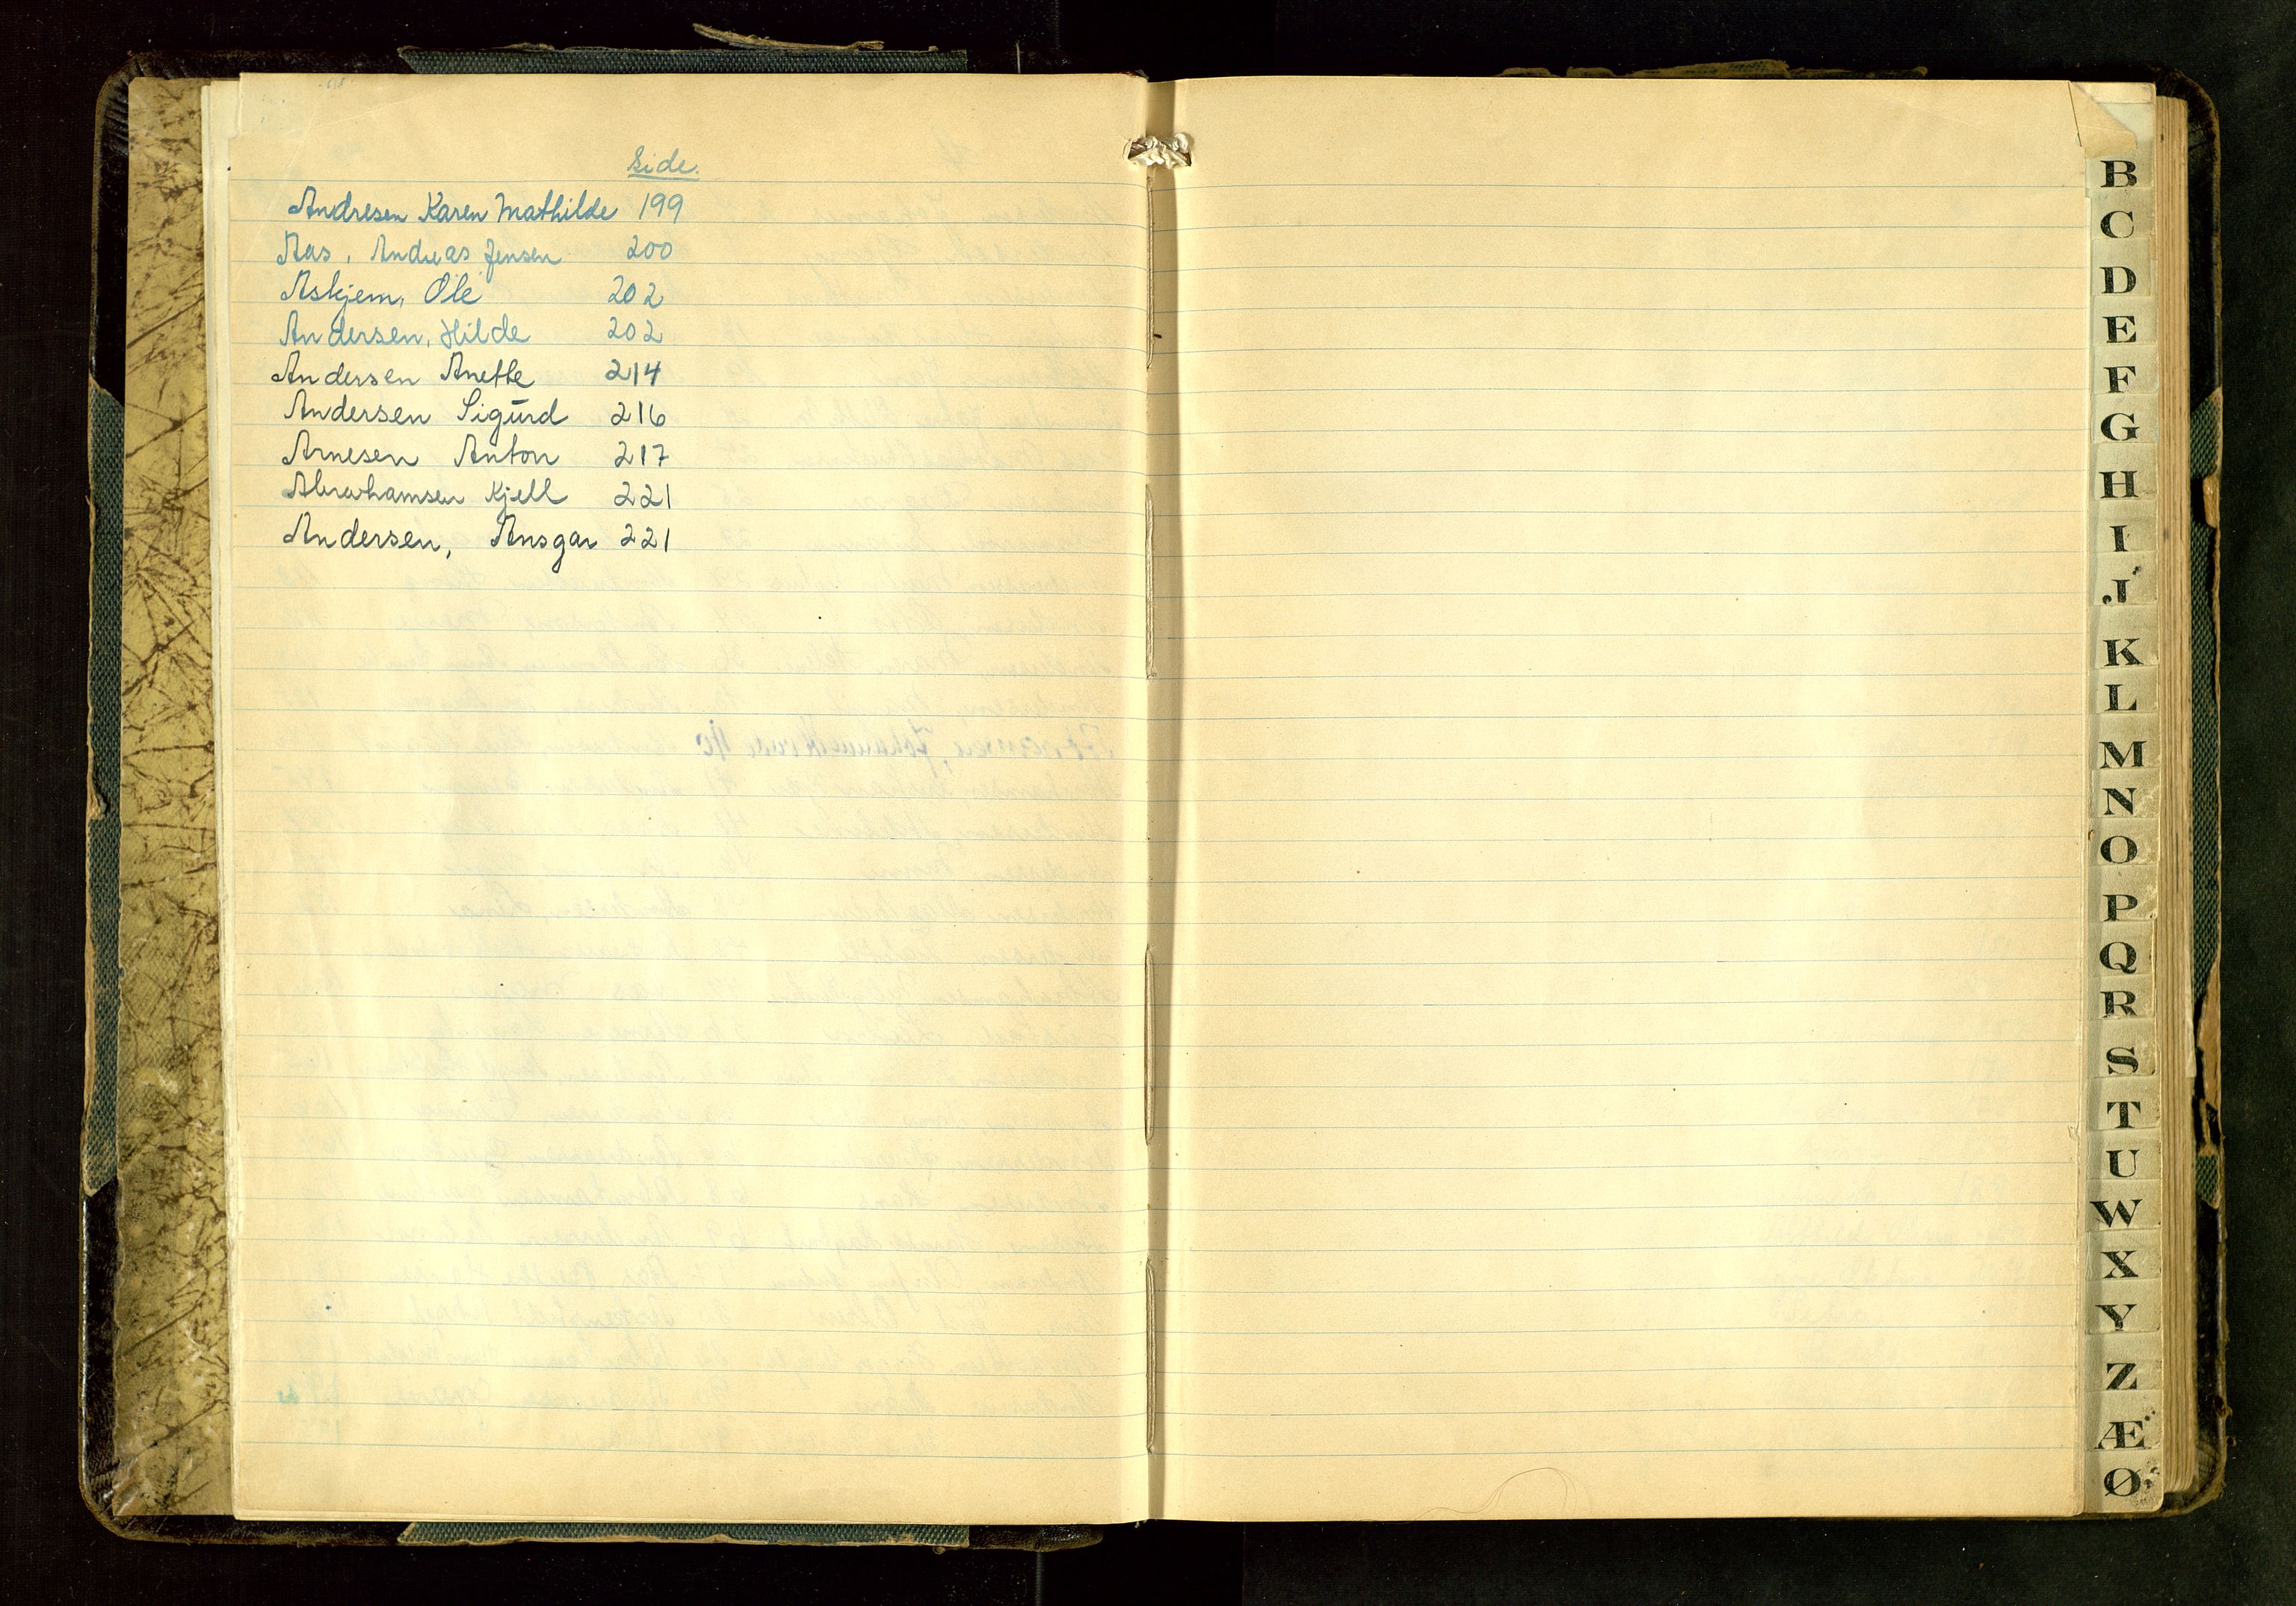 Side.
Andresen Karen Mathilde 199
Aas, Andreas Jensen 200
Askjem, Ole 202
Andersen, Hilde 202
Andersen Anette 214
Andersen Sigurd 216
Arnesen Anton 217
Abrahamsen Kjell 221
Andersen, Ansgar 221
B
C
D
E
F
G
H
I
J
K
L
M
N
O
P
Q
R
S
T
U
W
X
Y
Z
Æ
Ø